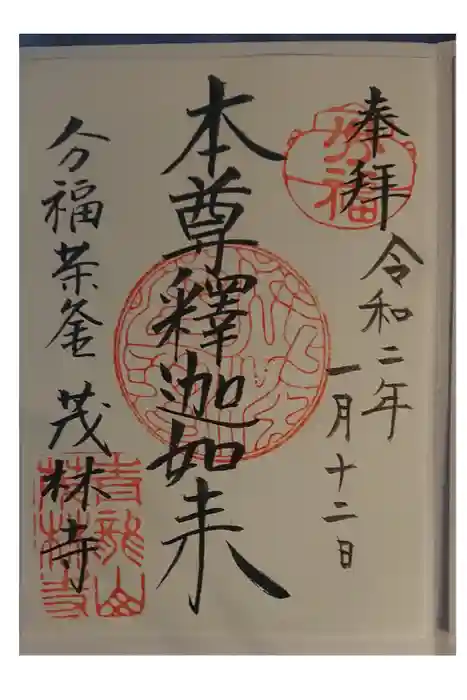 奉拝
令和二年
一月十二日
本尊釋迦如来
分福茶釜 茂林寺
分福
青龍山
茂林寺